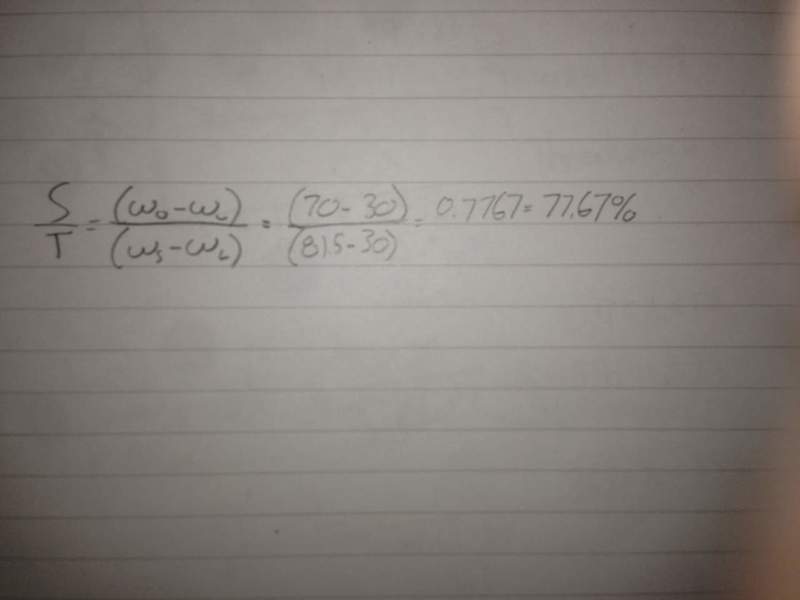 S/T = (ω₀-ω_L)/(ω_s-ω_L) = (70-30)/(81.5-30) = 0.7767 = 77.67%